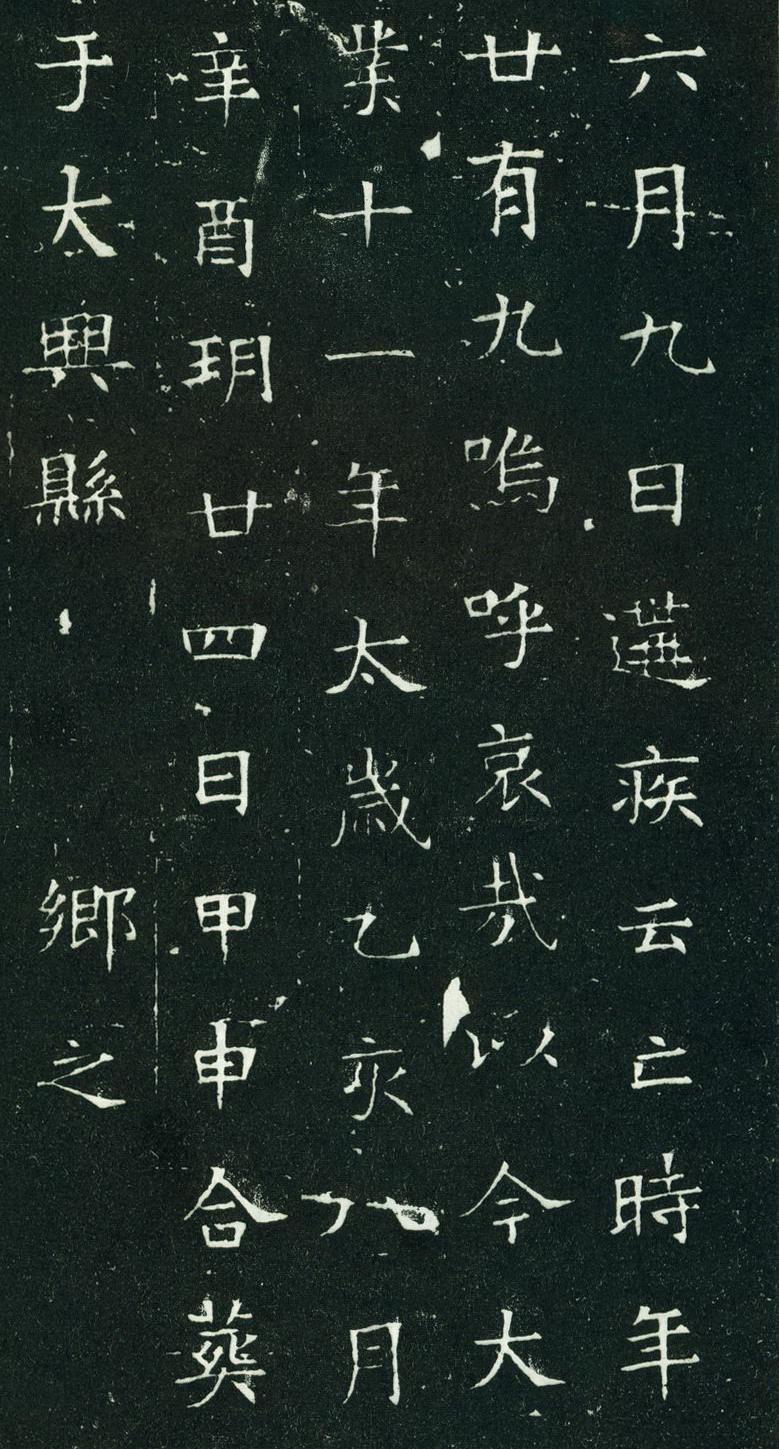 六月九日遘疾云亡時年
廿有九嗚呼哀哉以今大
業十一年太歲乙亥八月
辛酉玥廿四日甲申合葬
于大興縣 鄉之